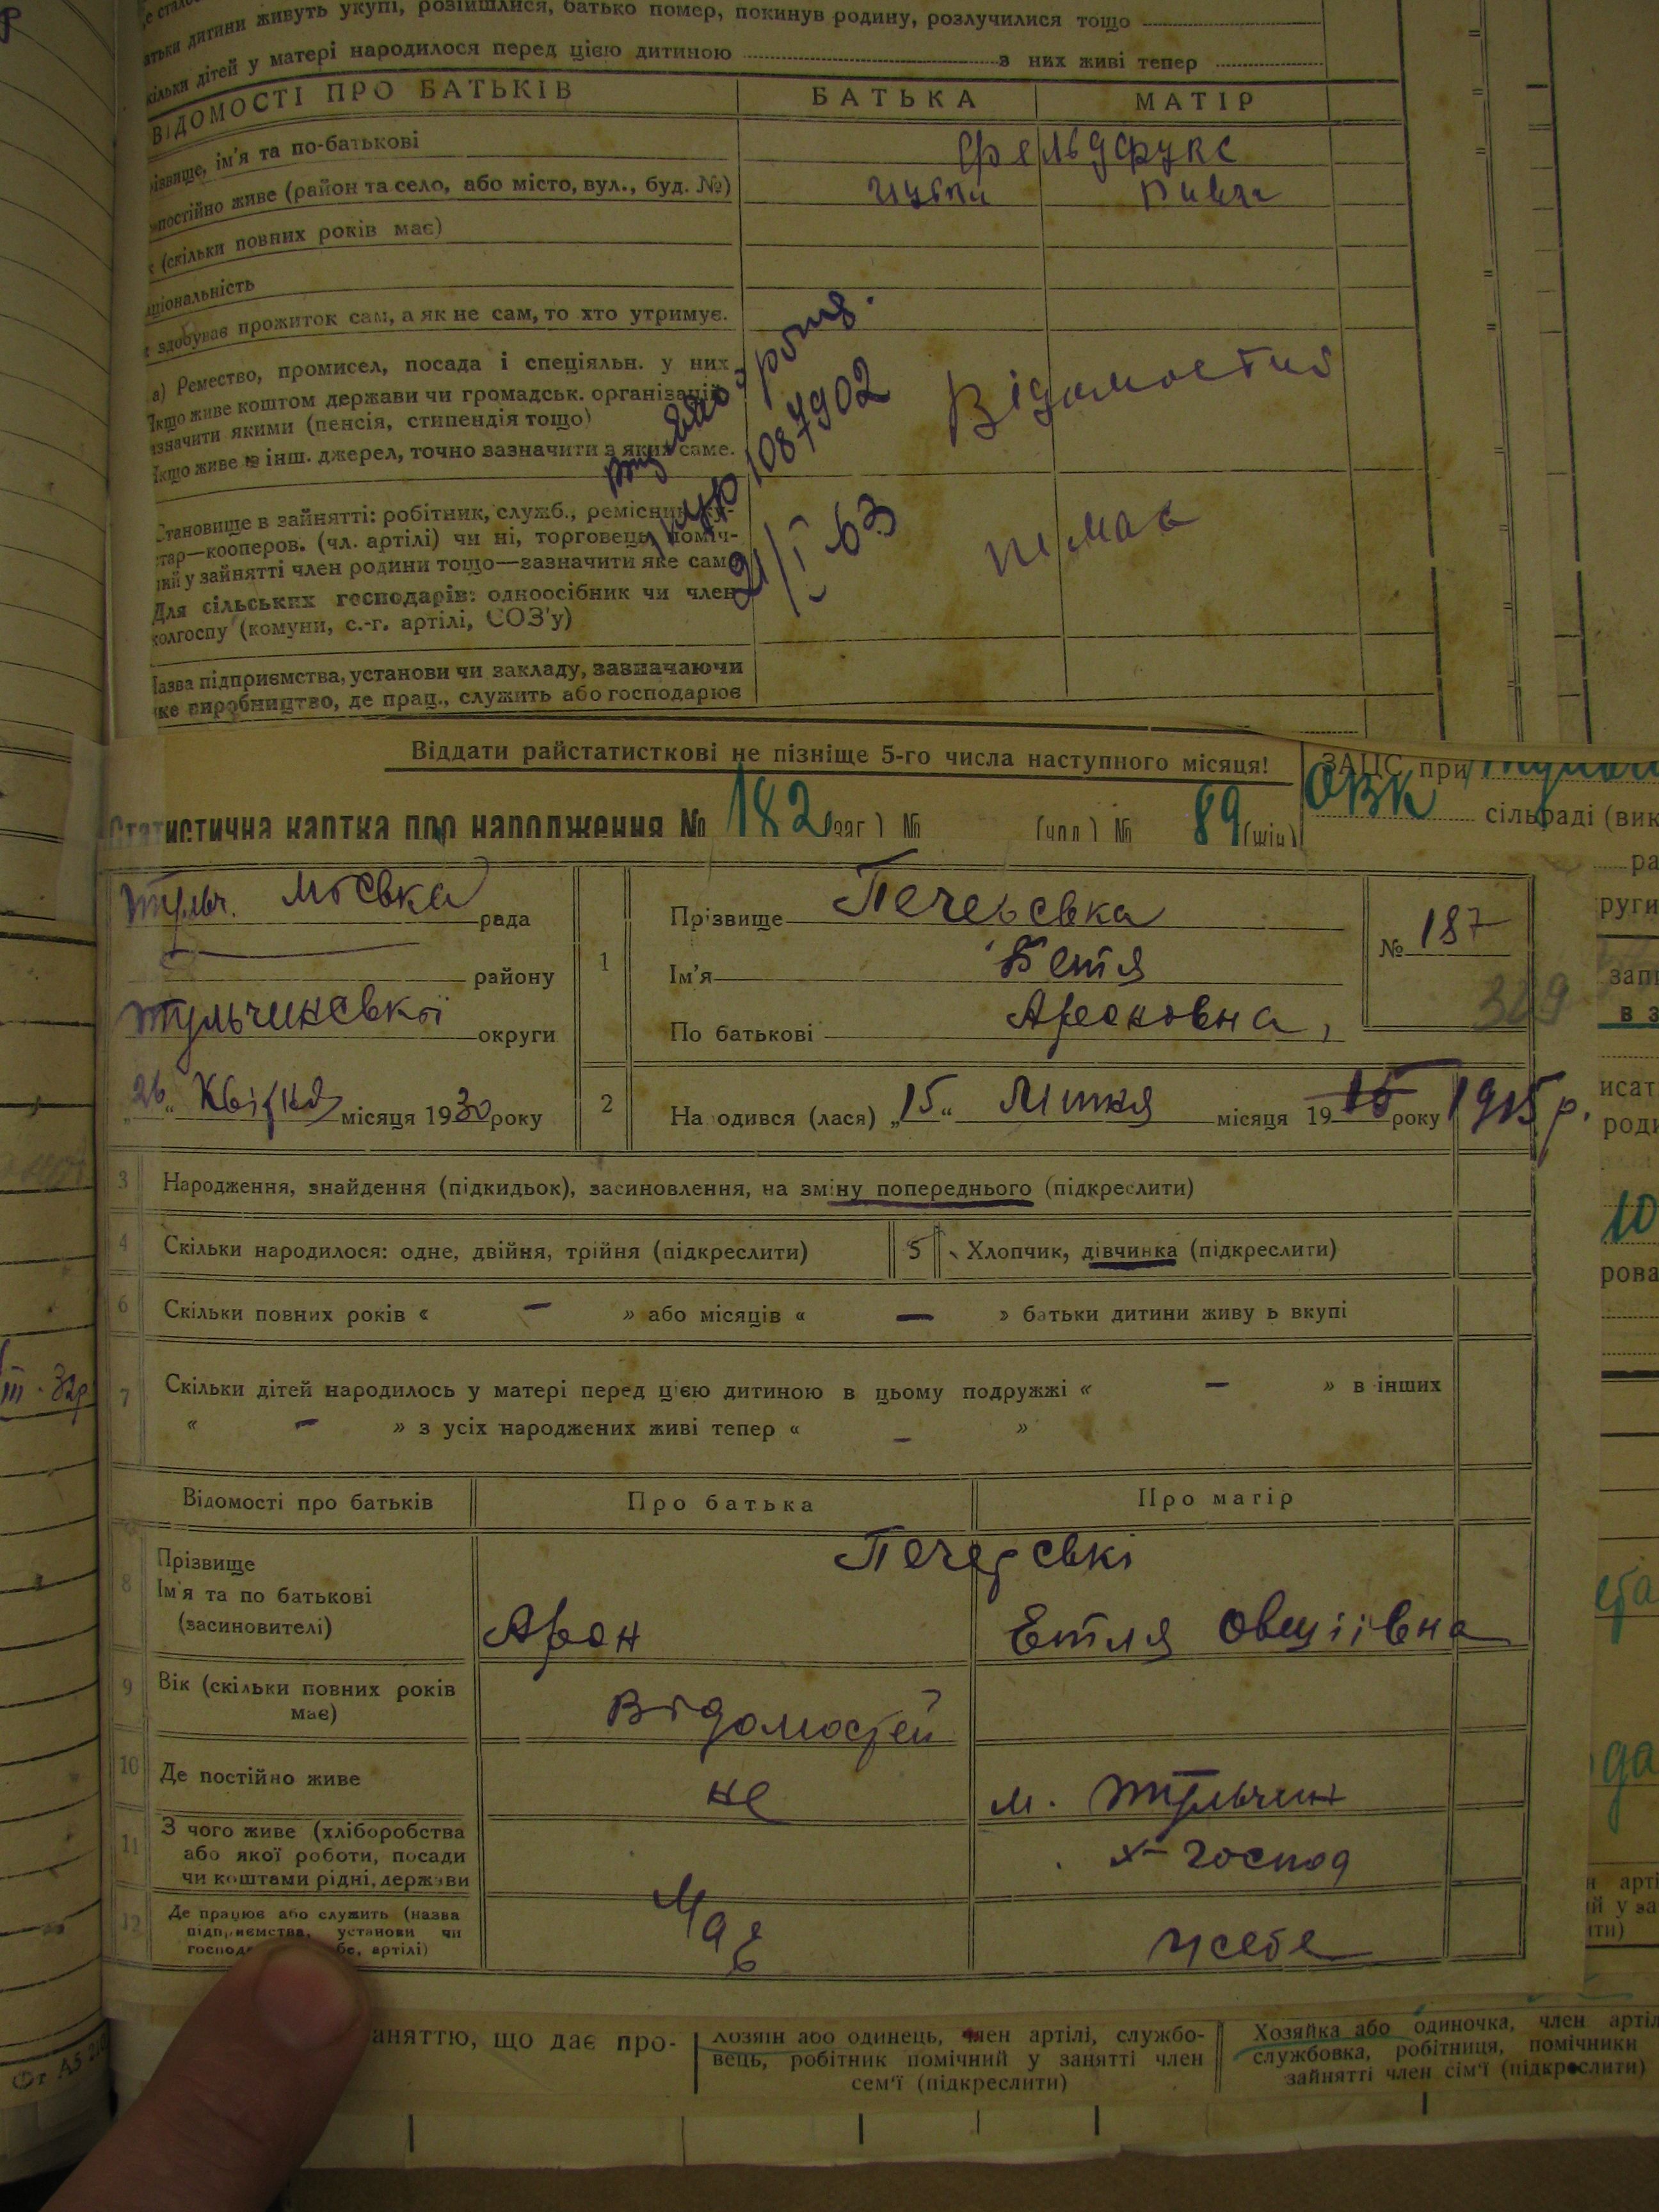 атьки дитини живуть укупі, розійшлися, батько помер, покинув родину, розлучилися тощо
кільки дітей у матері народилося перед цією дитиною з них живі тепер
ВІДОМОСТІ ПРО БАТЬКІВ БАТЬКА МАТІР
ізвище, ім'я та по-батькові Фельдфукс
постійно живе (район та село, або місто, вул., буд. №)
(скільки повних років має)
аціональність
здобуває прожиток сам, а як не сам, то хто утримує.
а) Ремество, промисел, посада і спеціяльн. у них
Якщо живе коштом держави чи громадськ. організацій
азначити якими (пенсія, стипендія тощо)
Якщо живе з інш. джерел, точно зазначити з яких саме.
Відомостий
1087902
21/I 63
немає
Становище в зайнятті: робітник, служб., ремісник ку-
стар—кооперов. (чл. артілі) чи ні, торговець, поміч-
ний у зайнятті член родини тощо—зазначити яке саме
Для сільських господарів: одноосібник чи член
колгоспу (комуни, с.-г. артілі, СОЗ'у)
Назва підприємства, установи чи закладу, зазначаючи
яке виробництво, де прац., служить або господарює
Віддати райстатисткові не пізніше 5-го числа наступного місяця!
ЗАЦС при
ОВК сільраді (вик
Статистична картка про народження № 182 (заг.) № (чол.) № 89 (жін)
Тульч. Міська рада
району
Тульчинської округи
„26“ Квітня місяця 1930 року
1 Прізвище Печерська
Ім'я Бетя
По батькові Ароновна,
№ 187
329
2 На одився (лася) „15“ Липня місяця 1915 року 1915 р.
3 Народження, знайдення (підкидьок), засиновлення, на зміну попереднього (підкреслити)
4 Скільки народилося: одне, двійня, трійня (підкреслити) 5 Хлопчик, дівчинка (підкреслити)
6 Скільки повних років « — » або місяців « — » батьки дитини живу ь вкупі
7 Скільки дітей народилось у матері перед цією дитиною в цьому подружжі « — » в інших
« — » з усіх народжених живі тепер « — »
Відомості про батьків Про батька Про матір
8 Прізвище Печерські
Ім'я та по батькові
(засиновителі) Арон Етля Овшіївна
9 Вік (скільки повних років
має) Відомостей
10 Де постійно живе не м. Тульчин
11 З чого живе (хліборобства
або якої роботи, посади
чи коштами рідні, держави
х-господ
12 Де працює або служить (назва
підприємства, установи чи
господ бе, артілі) має у себе
аняттю, що дає про-
Хозяїн або одинець, член артілі, службо-
вець, робітник помічний у занятті член
сем'ї (підкреслити)
Хозяйка або одиночка, член артіл
службовка, робітниця, помічники
зайнятті член сім'ї (підкреслити)